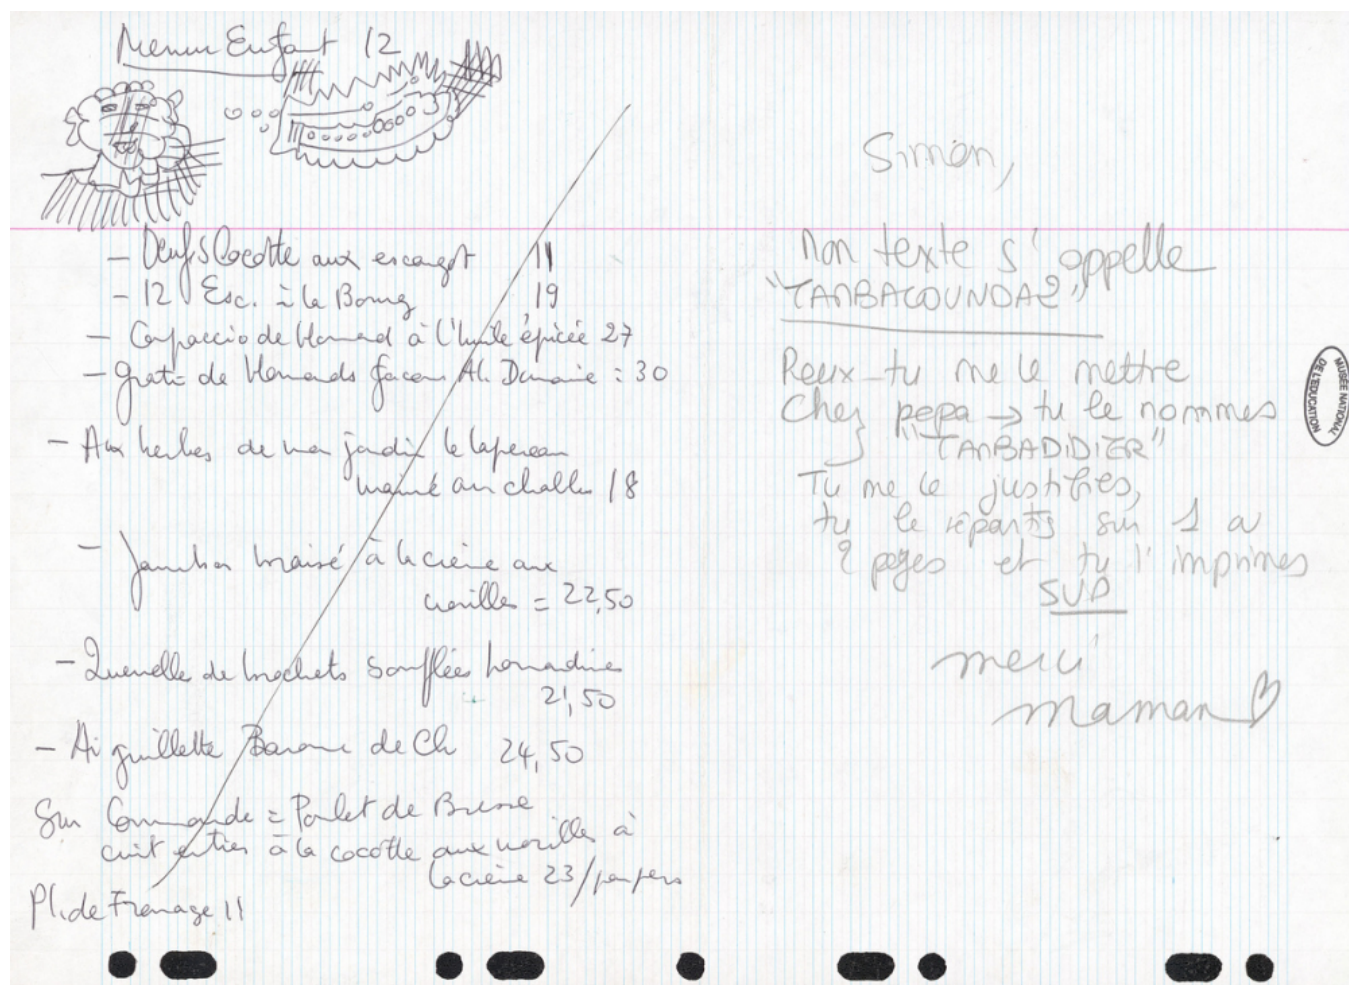 Menu Enfant 12
- Oeufs Cocotte aux escargot 11
- 12 Esc. à la Bourg 19
- Carpaccio de Homard à l'huile épicée 27
- gratin de Homards façon 30
- Aux herbes de mon jardin le lapereau
mariné au 18
- Jambon braisé à la crème aux
morilles = 22,50
- Quenelle de brochets soufflées homardine
21,50
- Aiguillette Baronne de Ch 24,50
Sur Commande = Poulet de Bresse
cuit entier à la cocotte aux morilles à
la crème 23/par pers
Pl. de Fromage 11
Simon,
Mon texte s'appelle
"TAMBACOUNDA2"
Peux-tu me le mettre
chez pepa → tu le nommes
"TAMBADIDIER"
Tu me le justifies,
tu le répartis sur 1 a
2 pages et tu l'imprimes
SVP
merci
maman
MUSÉE NATIONAL
DE L'EDUCATION